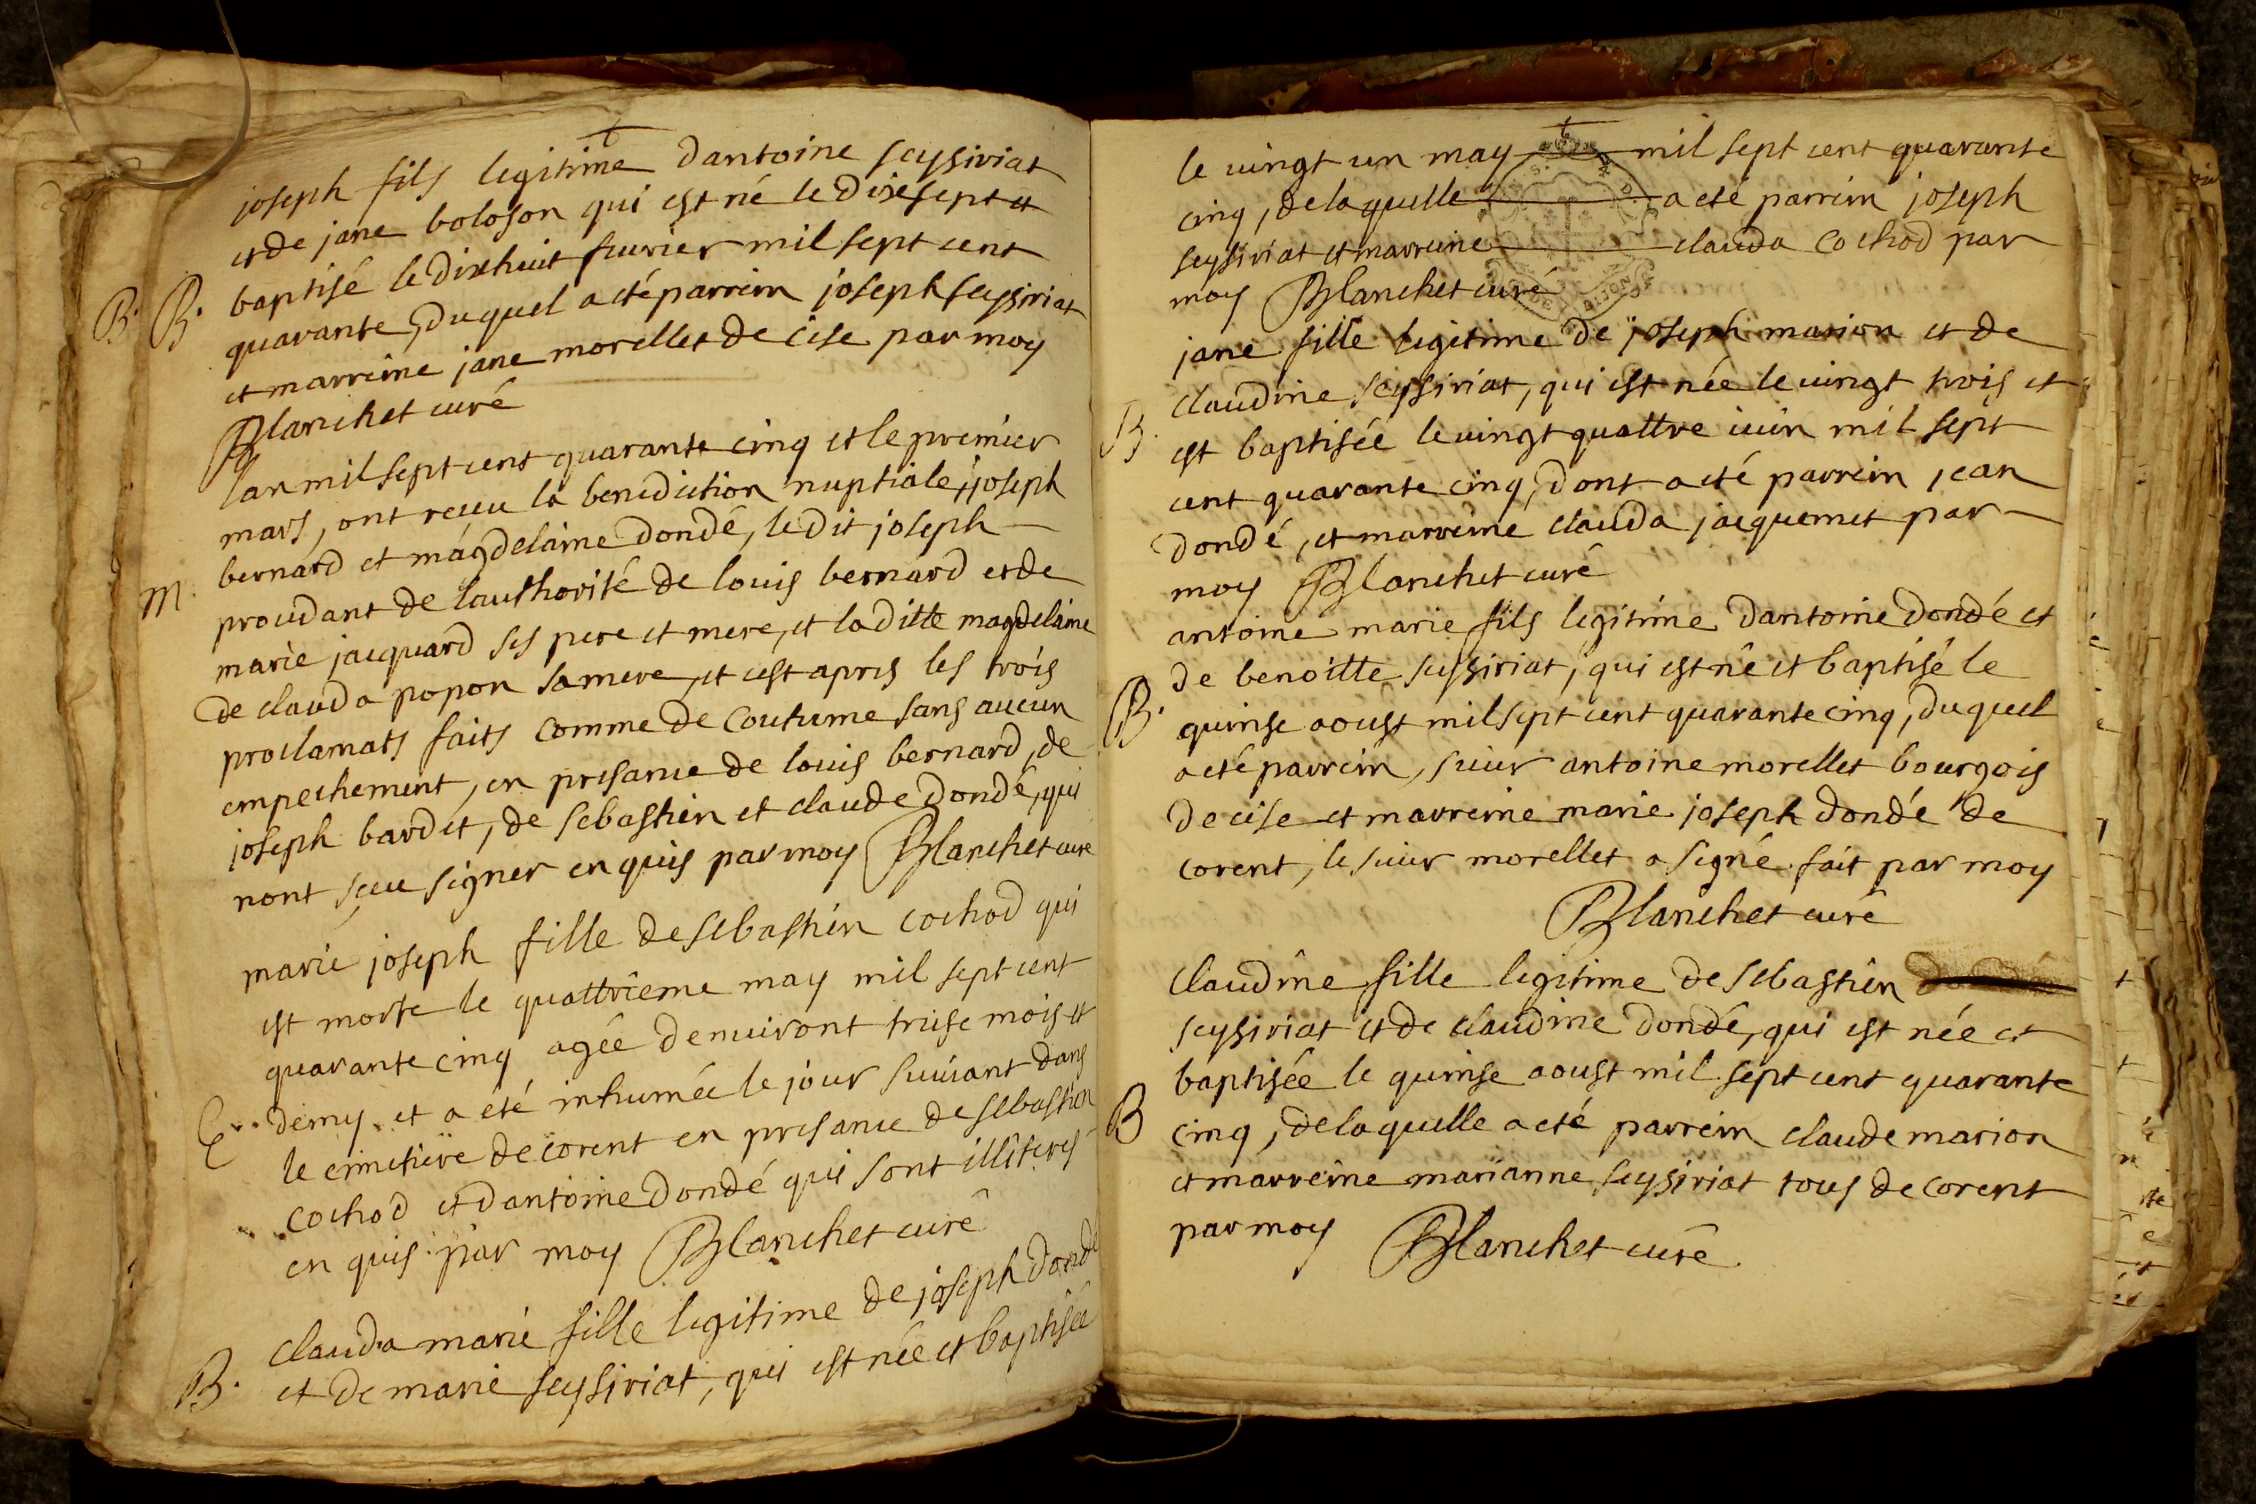 t
joseph fils legitime dantoine seysiriat
et de jane boloson qui est né le dixsept et
baptisé le dixhuit fuvrier mil sept cent
B. B.
quarante, duquel a eté parrein joseph seysiriat
et marreine jane morellet de cise par moy
Blanchet curé
lan mil sept cent quarante cinq et le premier
mars, ont reçeu la benediction nuptiale, joseph
bernard et magdelaine dondé, le dit joseph
M.
procedant de lauthorité de louis bernard et de
marie jacquard ses pere et mere, et la ditte magdelaine
de clauda popon sa mere, et cest apres les trois
proclamats faits comme de coutume sans aucun
empechement, en presance de louis bernard, de
joseph bardet, de sebastien et claude dondé, qui
nont sçeu signer en quis par moy Blanchet curé
marie joseph fille de sebastien cochod qui
est morte le quattrieme may mil sept cent
quarante cinq agée denuiront treise mois et
E.. demy et a eté inhumée le jour suivant dans
le cimetiere de corent en presance de sebastien
cochod et dantoine dondé qui sont illiteres
en quis par moy Blanchet curé
clauda marie fille legitime de joseph dondé
B. et de marie seysiriat, qui est née et baptisée
t
le vingt un may mil sept cent quarante
cinq, de laquelle a eté parrein joseph
seysiriat et marreine clauda cochod par
moy Blanchet curé
jane fille legitime de joseph marion et de
claudine seysiriat, qui est née le vingt trois et
B.
est baptisée le vingt quattre iuin mil sept
cent quarante cinq, dont a eté parrein jean
dondé, et marreine clauda jacquemet par
moy Blanchet curé
antoine marie fils legitime dantoine dondé et
de benoitte seysiriat, qui est né et baptisé le
B.
quinse aoust mil sept cent quarante cinq, duquel
a eté parrein, sieur antoine morellet bourgois
de cise et marreine marie joseph dondé de
corent, le sieur morellet a signé fait par moy
Blanchet curé
claudine fille legitime de sebastien
seysiriat et de claudine dondé, qui est née et
baptisée le quinse aoust mil sept cent quarante
B
cinq, de laquelle a eté parrein claude marion
et marreine marianne seysiriat tous de corent
par moy Blanchet curé